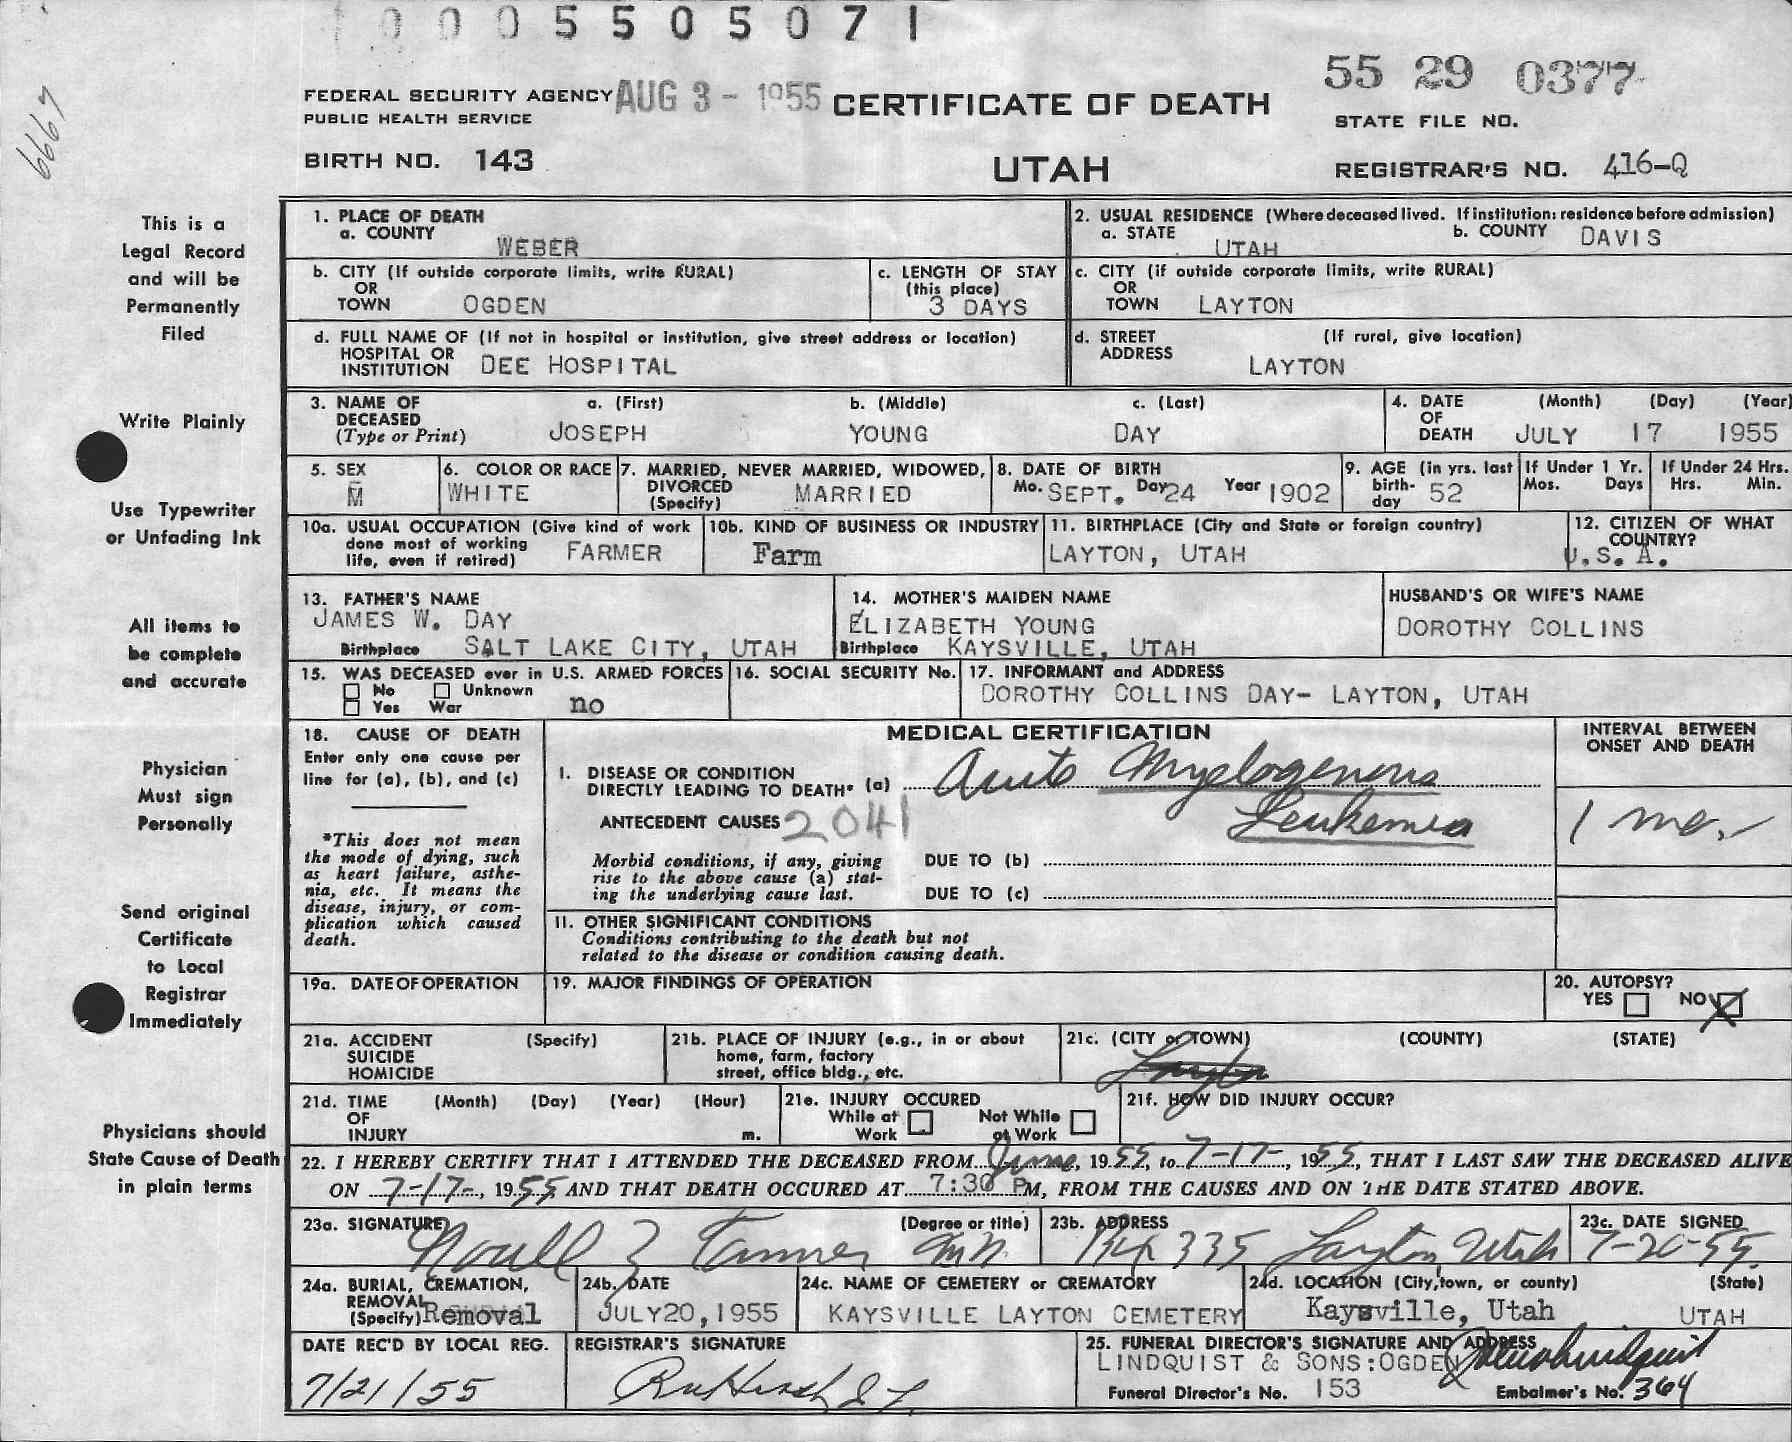 1000550507 1
6667
FEDERAL SECURITY AGENCY AUG 3 - 1955 CERTIFICATE OF DEATH 55 29 0377
PUBLIC HEALTH SERVICE STATE FILE NO.
BIRTH NO. 143 UTAH REGISTRAR'S NO. 416-Q
This is a
Legal Record
and will be
Permanently
Filed
Write Plainly
Use Typewriter
or Unfading Ink
All items to
be complete
and accurate
Physician
Must sign
Personally
Send original
Certificate
to Local
Registrar
Immediately
Physicians should
State Cause of Death
in plain terms
1. PLACE OF DEATH
a. COUNTY WEBER
2. USUAL RESIDENCE (Where deceased lived. If institution: residence before admission)
a. STATE UTAH b. COUNTY DAVIS
b. CITY (If outside corporate limits, write RURAL)
OR
TOWN OGDEN
c. LENGTH OF STAY
(this place)
3 DAYS
c. CITY (if outside corporate limits, write RURAL)
OR
TOWN LAYTON
d. FULL NAME OF (If not in hospital or institution, give street address or location)
HOSPITAL OR
INSTITUTION DEE HOSPITAL
d. STREET (If rural, give location)
ADDRESS
LAYTON
3. NAME OF a. (First) b. (Middle) c. (Last)
DECEASED
(Type or Print) JOSEPH YOUNG DAY
4. DATE (Month) (Day) (Year)
OF
DEATH JULY 17 1955
5. SEX
M
6. COLOR OR RACE
WHITE
7. MARRIED, NEVER MARRIED, WIDOWED,
DIVORCED MARRIED
(Specify)
8. DATE OF BIRTH
Mo. SEPT. Day 24 Year 1902
9. AGE (in yrs. last
birth- 52
day
If Under 1 Yr.
Mos. Days
If Under 24 Hrs.
Hrs. Min.
10a. USUAL OCCUPATION (Give kind of work
done most of working FARMER
life, even if retired)
10b. KIND OF BUSINESS OR INDUSTRY
Farm
11. BIRTHPLACE (City and State or foreign country)
LAYTON, UTAH
12. CITIZEN OF WHAT
COUNTRY?
U.S.A.
13. FATHER'S NAME
JAMES W. DAY
Birthplace SALT LAKE CITY, UTAH
14. MOTHER'S MAIDEN NAME
ELIZABETH YOUNG
Birthplace KAYSVILLE, UTAH
HUSBAND'S OR WIFE'S NAME
DOROTHY COLLINS
15. WAS DECEASED ever in U.S. ARMED FORCES
No Unknown
Yes War no
16. SOCIAL SECURITY No.
17. INFORMANT and ADDRESS
DOROTHY COLLINS DAY- LAYTON, UTAH
18. CAUSE OF DEATH
Enter only one cause per
line for (a), (b), and (c)
*This does not mean
the mode of dying, such
as heart failure, asthe-
nia, etc. It means the
disease, injury, or com-
plication which caused
death.
MEDICAL CERTIFICATION
I. DISEASE OR CONDITION
DIRECTLY LEADING TO DEATH* (a) Acute Myelogenous
Leukemia
ANTECEDENT CAUSES 2041
Morbid conditions, if any, giving DUE TO (b)
rise to the above cause (a) stat-
ing the underlying cause last. DUE TO (c)
II. OTHER SIGNIFICANT CONDITIONS
Conditions contributing to the death but not
related to the disease or condition causing death.
INTERVAL BETWEEN
ONSET AND DEATH
1 mo.
19a. DATE OF OPERATION
19. MAJOR FINDINGS OF OPERATION
20. AUTOPSY?
YES NO X
21a. ACCIDENT (Specify)
SUICIDE
HOMICIDE
21b. PLACE OF INJURY (e.g., in or about
home, farm, factory
street, office bldg., etc.
21c. (CITY or TOWN) (COUNTY) (STATE)
Layton
21d. TIME (Month) (Day) (Year) (Hour)
OF
INJURY m.
21e. INJURY OCCURED
While at Not While
Work at Work
21f. HOW DID INJURY OCCUR?
22. I HEREBY CERTIFY THAT I ATTENDED THE DECEASED FROM June, 1955, to 7-17-, 1955, THAT I LAST SAW THE DECEASED ALIVE
ON 7-17-, 1955, AND THAT DEATH OCCURED AT 7:30 PM, FROM THE CAUSES AND ON THE DATE STATED ABOVE.
23a. SIGNATURE (Degree or title)
Noall Z Tanner M.D.
23b. ADDRESS
Box 335 Layton, Utah
23c. DATE SIGNED
7-20-55
24a. BURIAL, CREMATION,
REMOVAL
(Specify) Removal
24b. DATE
JULY 20, 1955
24c. NAME OF CEMETERY or CREMATORY
KAYSVILLE LAYTON CEMETERY
24d. LOCATION (City, town, or county) (State)
Kaysville, Utah UTAH
DATE REC'D BY LOCAL REG.
7/21/55
REGISTRAR'S SIGNATURE
25. FUNERAL DIRECTOR'S SIGNATURE AND ADDRESS
LINDQUIST & SONS:OGDEN
Funeral Director's No. 153 Embalmer's No. 364